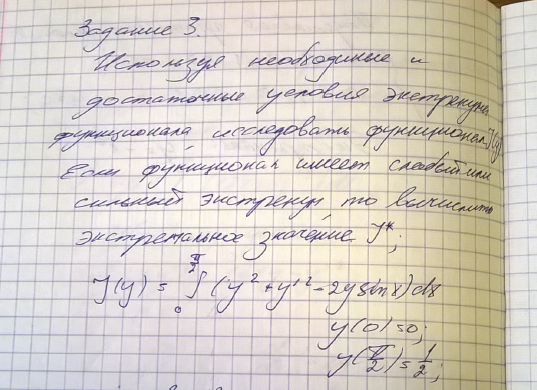 Задание 3.
Используя необходимые и
достаточные условия экстремума
функционала исследовать функционал J(y)
Если функционал имеет слабый или
сильный экстремум то вычислить
экстремальное значение J*;
J(y) = ∫₀^{π/2} (y² + y'² - 2y sin x) dx
y(0) = 0;
y(π/2) = 1/2;